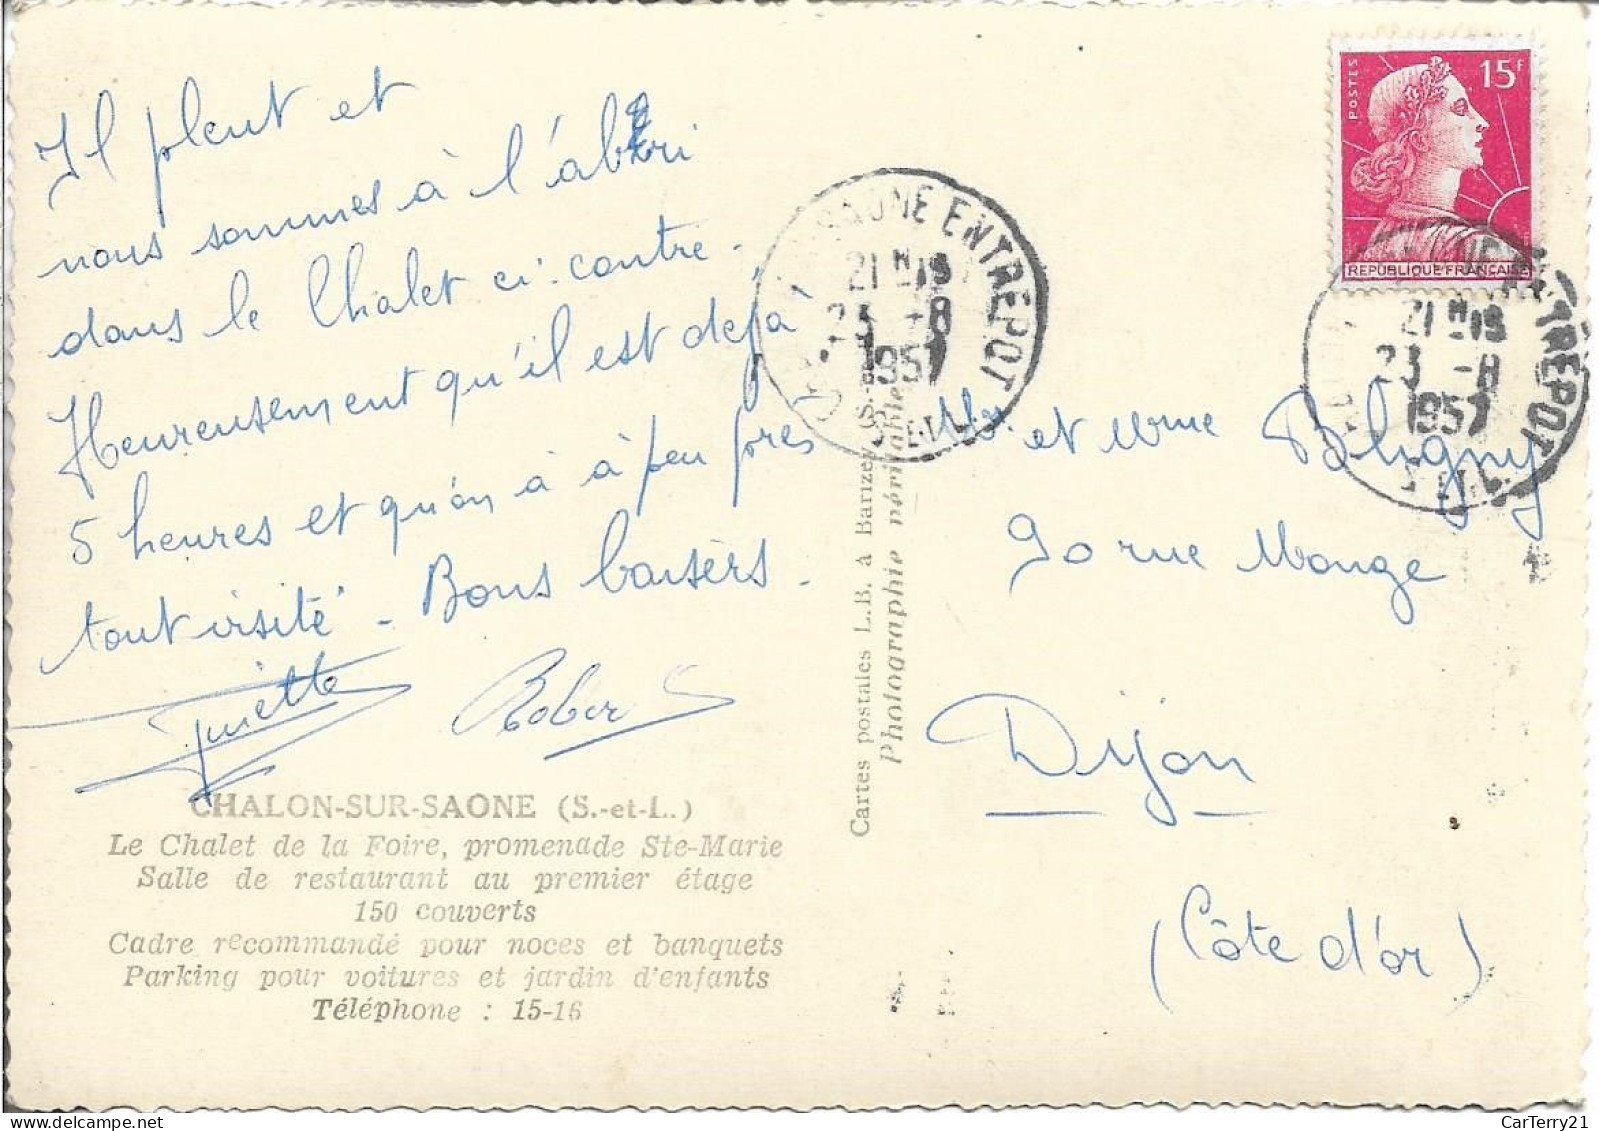 Il pleut et
nous sommes à l'abri
dans le Chalet ci-contre.
Heureusement qu'il est dejà
5 heures et qu'on a à peu près
tout visité - Bons baisers.
Rober
CHALON-SUR-SAONE (S.-et-L.)
Le Chalet de la Foire, promenade Ste-Marie
Salle de restaurant au premier étage
150 couverts
Cadre recommandé pour noces et banquets
Parking pour voitures et jardin d'enfants
Téléphone : 15-16
Cartes postales L.B. à Barizey (S.-
Photographie véritable
SAONE ENTREPOT
21H 15
23 -8
1957
S.-ET-L.
POSTES
15F
REPUBLIQUE FRANÇAISE
ENTREPOT
21H 15
23 -8
1957
Mr et Mme Bligny
90 rue Monge
Dijon
(Côte d'or)
CarTerry21